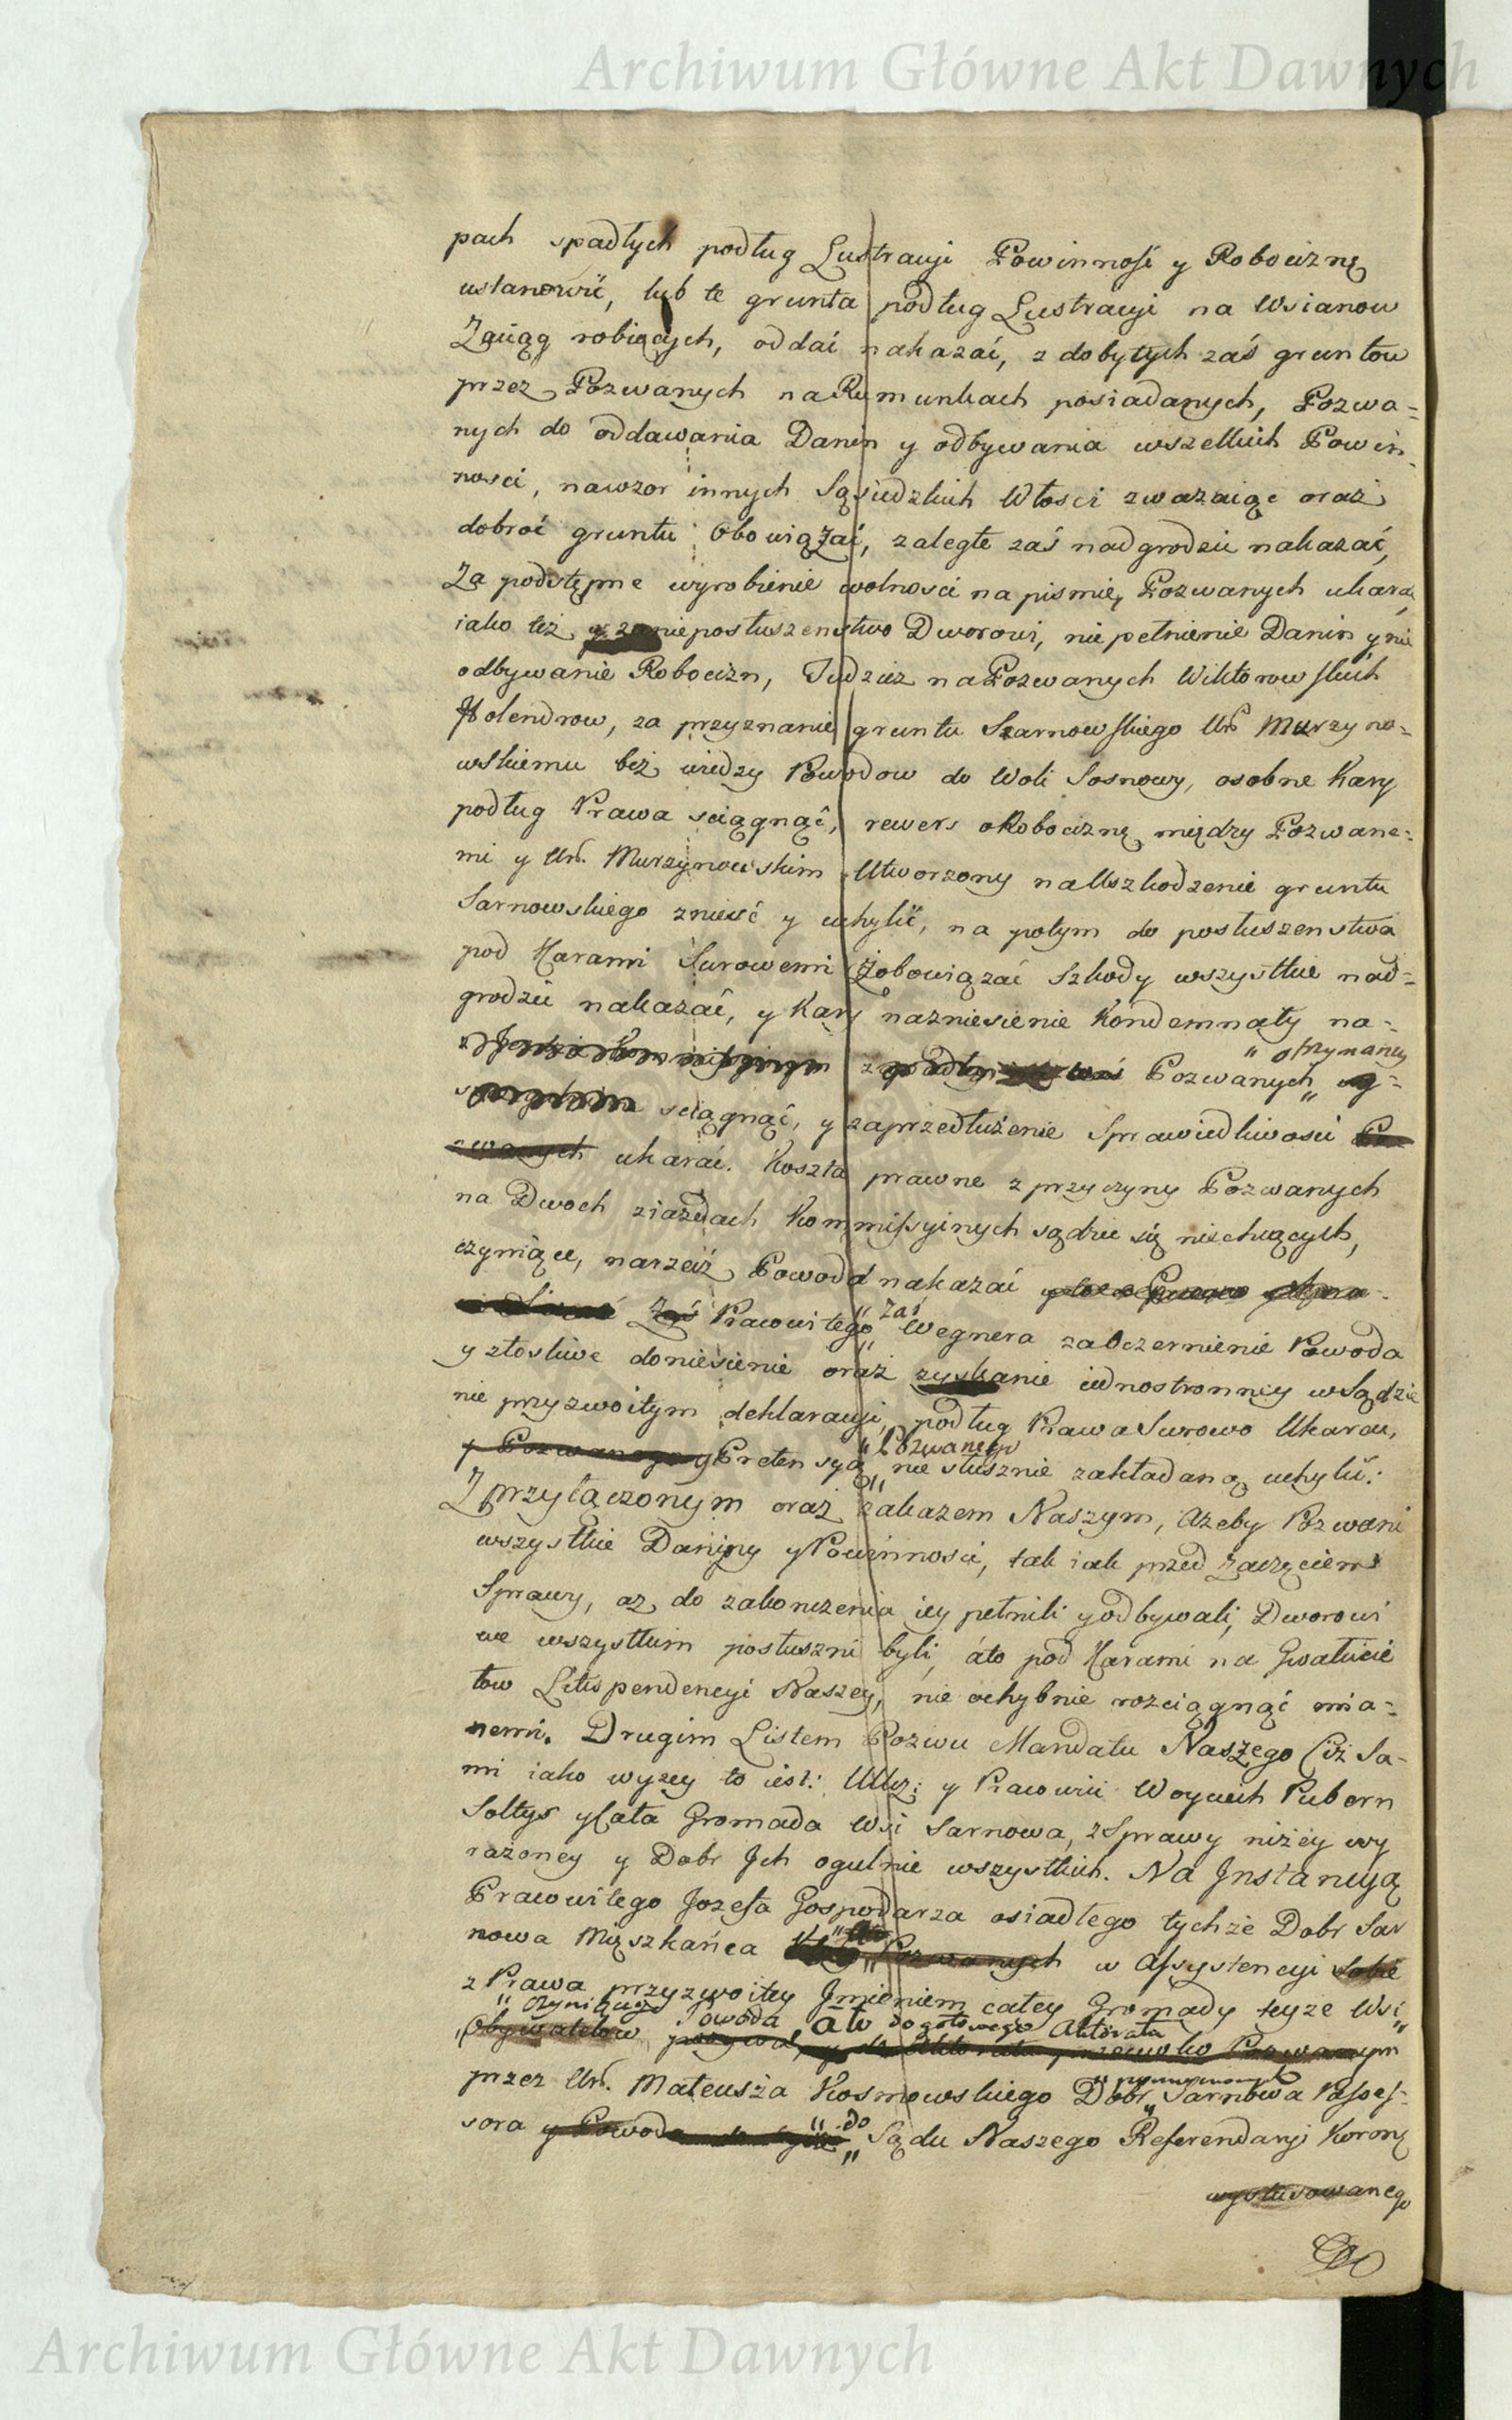 Archiwum Główne Akt Dawnych
pach spadłych podług Lustracyi Powinność y Robociznę
ustanowić, lub te grunta podług Lustracyi na Wsianow
Zaciąg robiących, oddać nakazać, z dobytych zaś gruntow
przez Pozwanych na Rumunkach posiadanych, Pozwa=
nych do oddawania Danin y odbywania wszelkich Powin
nosci, nawzor innych Sąsiedzkich Włosci zwazaiąc oraz
dobroć gruntu Obowiązać, zaległe zaś nadgrodzić nakazać,
Za podstępne wyrobienie wolnosci na pismie, Pozwanych ukarać,
iako też y za nieposłuszenstwo Dworowi, nie pełnienie Danin y nie
odbywanie Robocizn, Tudzież na Pozwanych Wiktorowskich
Holendrow, za przyznanie gruntu Sarnowskiego Ur. Murzyno=
wskiemu bez wiedzy Powodow do Woli Sosnowy, osobne Kary
podług Prawa sciągnąć, rewers o Robociznę między Pozwane=
mi y Ur. Murzynowskim Utworzony na Uszkodzenie gruntu
Sarnowskiego znieść y uchylić, na potym do posłuszenstwa
pod Karami Surowemi Zobowiązać Szkody wszystkie nad=
grodzić nakazać, y Kary na zniesienie Kondemnaty na=
" otrzymaney
Pozwanych
sciągnąć, y za przedłużenie Sprawiedliwosci Po
zwanych ukarać. Koszta prawne z przyczyny Pozwanych
na Dwoch ziazdach Kommissyinych sądzić się niechcących,
czyniące, narzecz Powoda nakazać
Zaś Prawowitego "zaś Wegnera za Oczernienie Powoda
y złosliwe doniesienie oraz zyskanie iednostronney w Sądzie
nie przyzwoitym deklaracyi, podług Prawa Surowo Ukarać,
y Pozwanego y Pretensyą "Pozwanego nie słusznie zakładaną uchylić:
Z przyłączonym oraz zakazem Naszym, Azeby Pozwani
wszystkie Daniny y Powinnosci, tak iak przed zaczęciem
Sprawy, az do zakonczenia iey pełnili y odbywali, Dworowi
we wszystkim posłuszni byli, áto pod Karami na Gwałcicie
low Litispendencyi Naszey, nie ochybnie rozciągnąć mia=
nemi. Drugim Listem Pozwu Mandatu Naszego Ciż Sa=
mi iako wyzey to iest: y Prawowici Woyciech Pubern
Sołtys y Cała Gromada Wsi Sarnowa, z Sprawy niżey wy
rażoney y Dobr Ich ogulnie wszystkich. Na Instancyą
Prawowitego Jozefa Gospodarza osiadłego tychże Dobr Sar
nowa Mięszkańca Pozwanych w Assystencyi sobie
z Prawa przyzwoitey Imieniem całey Gromady teyze Wsi
" czyniącego Powoda áto do gotowego Aktoratu
Obywatelow pozywa, y do Aktoratu przeciwko Pozwanym
przez Ur. Mateusza Kosmowskiego Dobr Sarnowa Posses=
sora y Powoda "do Sądu Naszego Referendaryi Koronney
wystosowanego
Archiwum Główne Akt Dawnych